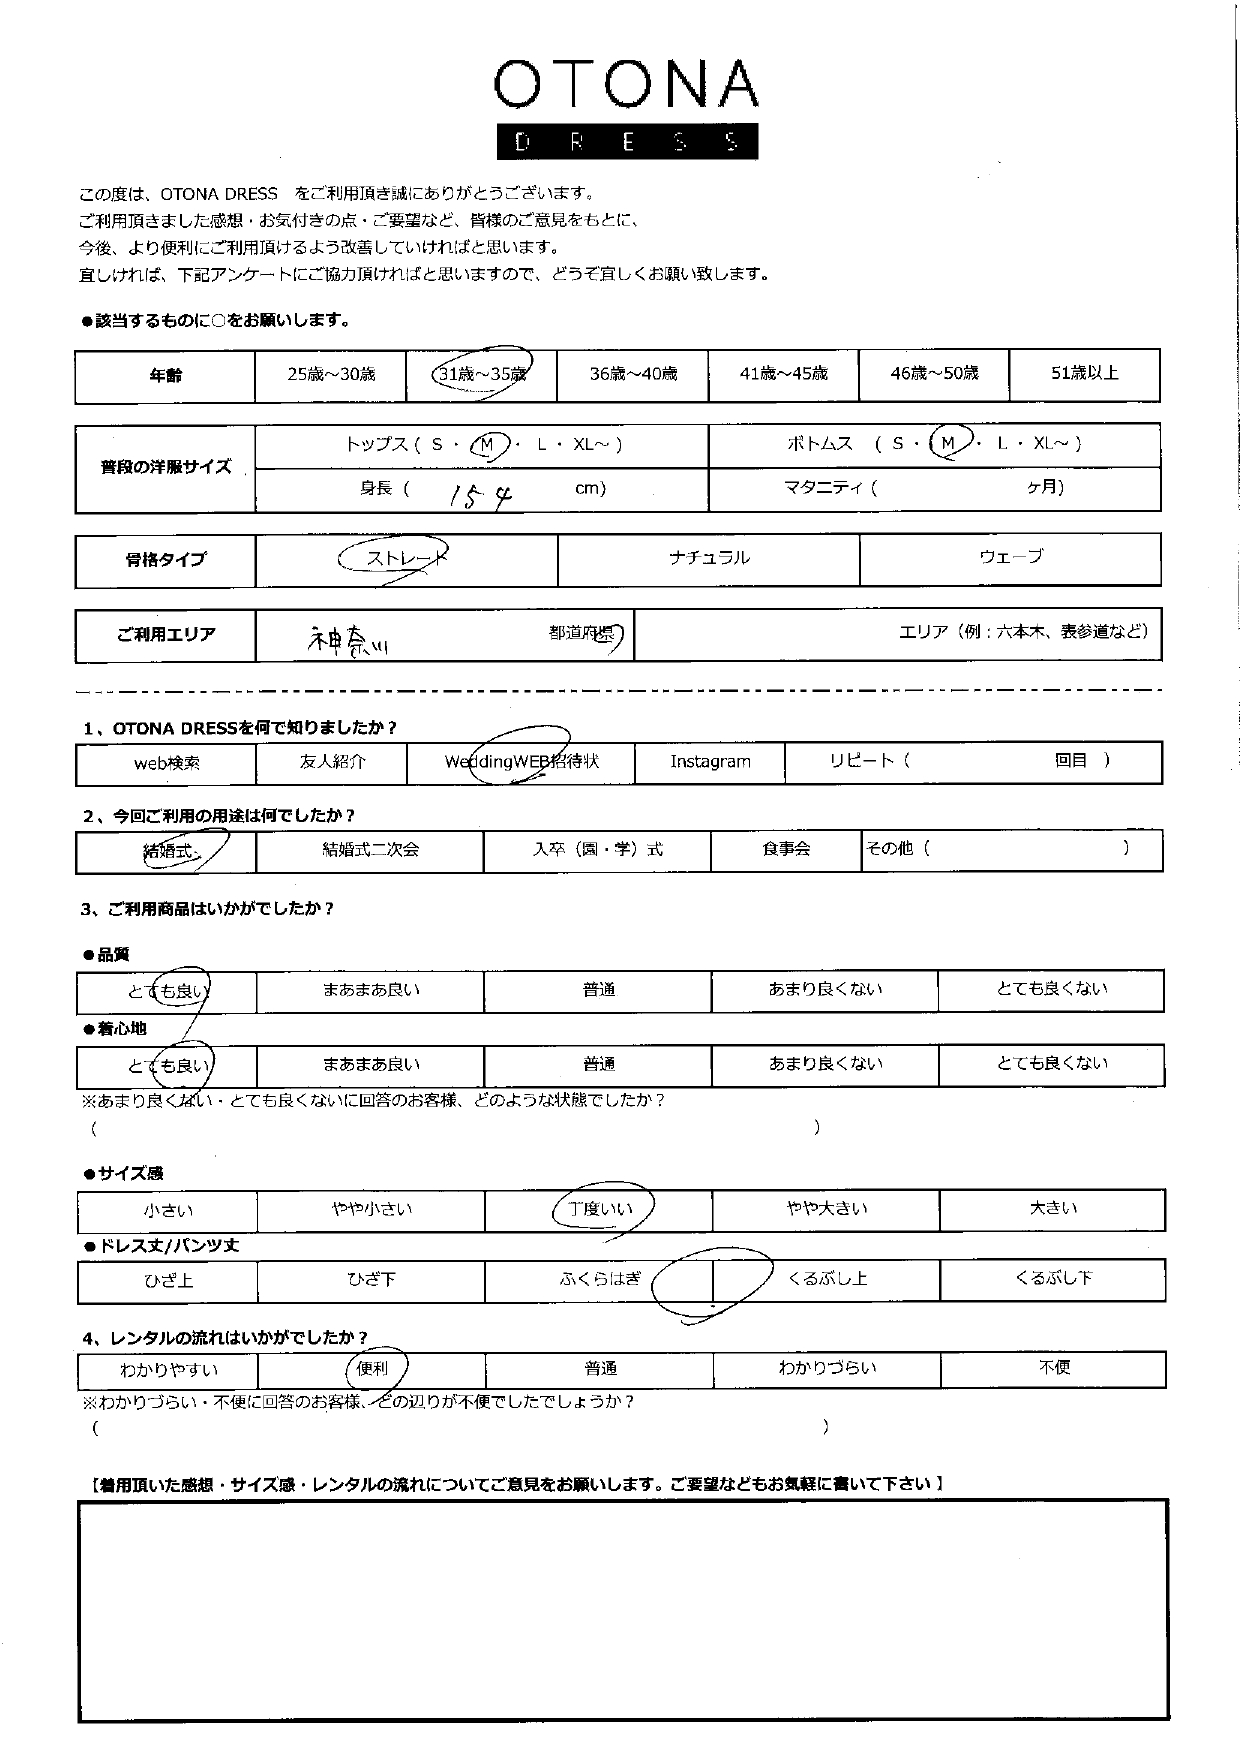 OTONA
DRESS
この度は、OTONA DRESS　をご利用頂き誠にありがとうございます。
ご利用頂きました感想・お気付きの点・ご要望など、皆様のご意見をもとに、
今後、より便利にご利用頂けるよう改善していければと思います。
宜しければ、下記アンケートにご協力頂ければと思いますので、どうぞ宜しくお願い致します。
●該当するものに○をお願いします。
年齢 25歳～30歳 31歳～35歳 36歳～40歳 41歳～45歳 46歳～50歳 51歳以上
普段の洋服サイズ トップス（ S ・ M ・ L ・ XL～ ） ボトムス （ S ・ M ・ L ・ XL～ ）
身長（ 154 cm） マタニティ（ ケ月）
骨格タイプ ストレート ナチュラル ウェーブ
ご利用エリア 神奈川 都道府県 エリア（例：六本木、表参道など）
1、OTONA DRESSを何で知りましたか？
web検索 友人紹介 WeddingWEB招待状 Instagram リピート（ 回目 ）
2、今回ご利用の用途は何でしたか？
結婚式 結婚式二次会 入卒（園・学）式 食事会 その他（ ）
3、ご利用商品はいかがでしたか？
●品質
とても良い まあまあ良い 普通 あまり良くない とても良くない
●着心地
とても良い まあまあ良い 普通 あまり良くない とても良くない
※あまり良くない・とても良くないに回答のお客様、どのような状態でしたか？
（ ）
●サイズ感
小さい やや小さい 丁度いい やや大きい 大きい
●ドレス丈/パンツ丈
ひざ上 ひざ下 ふくらはぎ くるぶし上 くるぶし下
4、レンタルの流れはいかがでしたか？
わかりやすい 便利 普通 わかりづらい 不便
※わかりづらい・不便に回答のお客様、どの辺りが不便でしたでしょうか？
（ ）
【着用頂いた感想・サイズ感・レンタルの流れについてご意見をお願いします。ご要望などもお気軽に書いて下さい 】